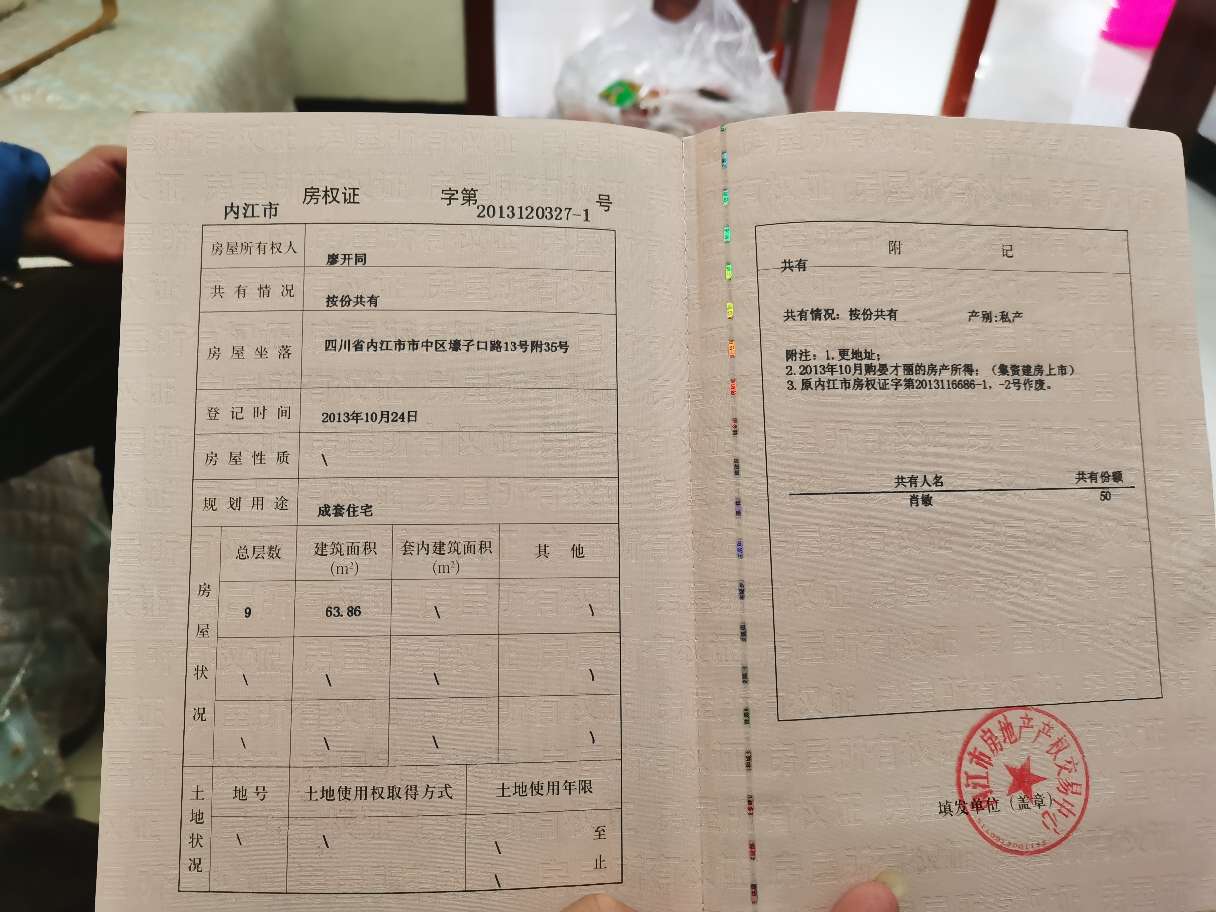 内江市 房权证 字第 2013120327-1 号
房屋所有权人 廖开同
共有情况 按份共有
房屋坐落 四川省内江市市中区壕子口路13号附35号
登记时间 2013年10月24日
房屋性质 \
规划用途 成套住宅
房屋状况
总层数 建筑面积(m²) 套内建筑面积(m²) 其他
9 63.86 \ \
\ \ \ \
\ \ \ \
土地状况
地号 土地使用权取得方式 土地使用年限
\ \ \ 至
\ 止
附记
共有
共有情况：按份共有 产别:私产
附注：1.更地址；
2.2013年10月购晏才丽的房产所得；（集资建房上市）
3.原内江市房权证字第2013116686-1，-2号作废。
共有人名 共有份额
肖敏 50
内江市房地产产权交易中心
填发单位（盖章）